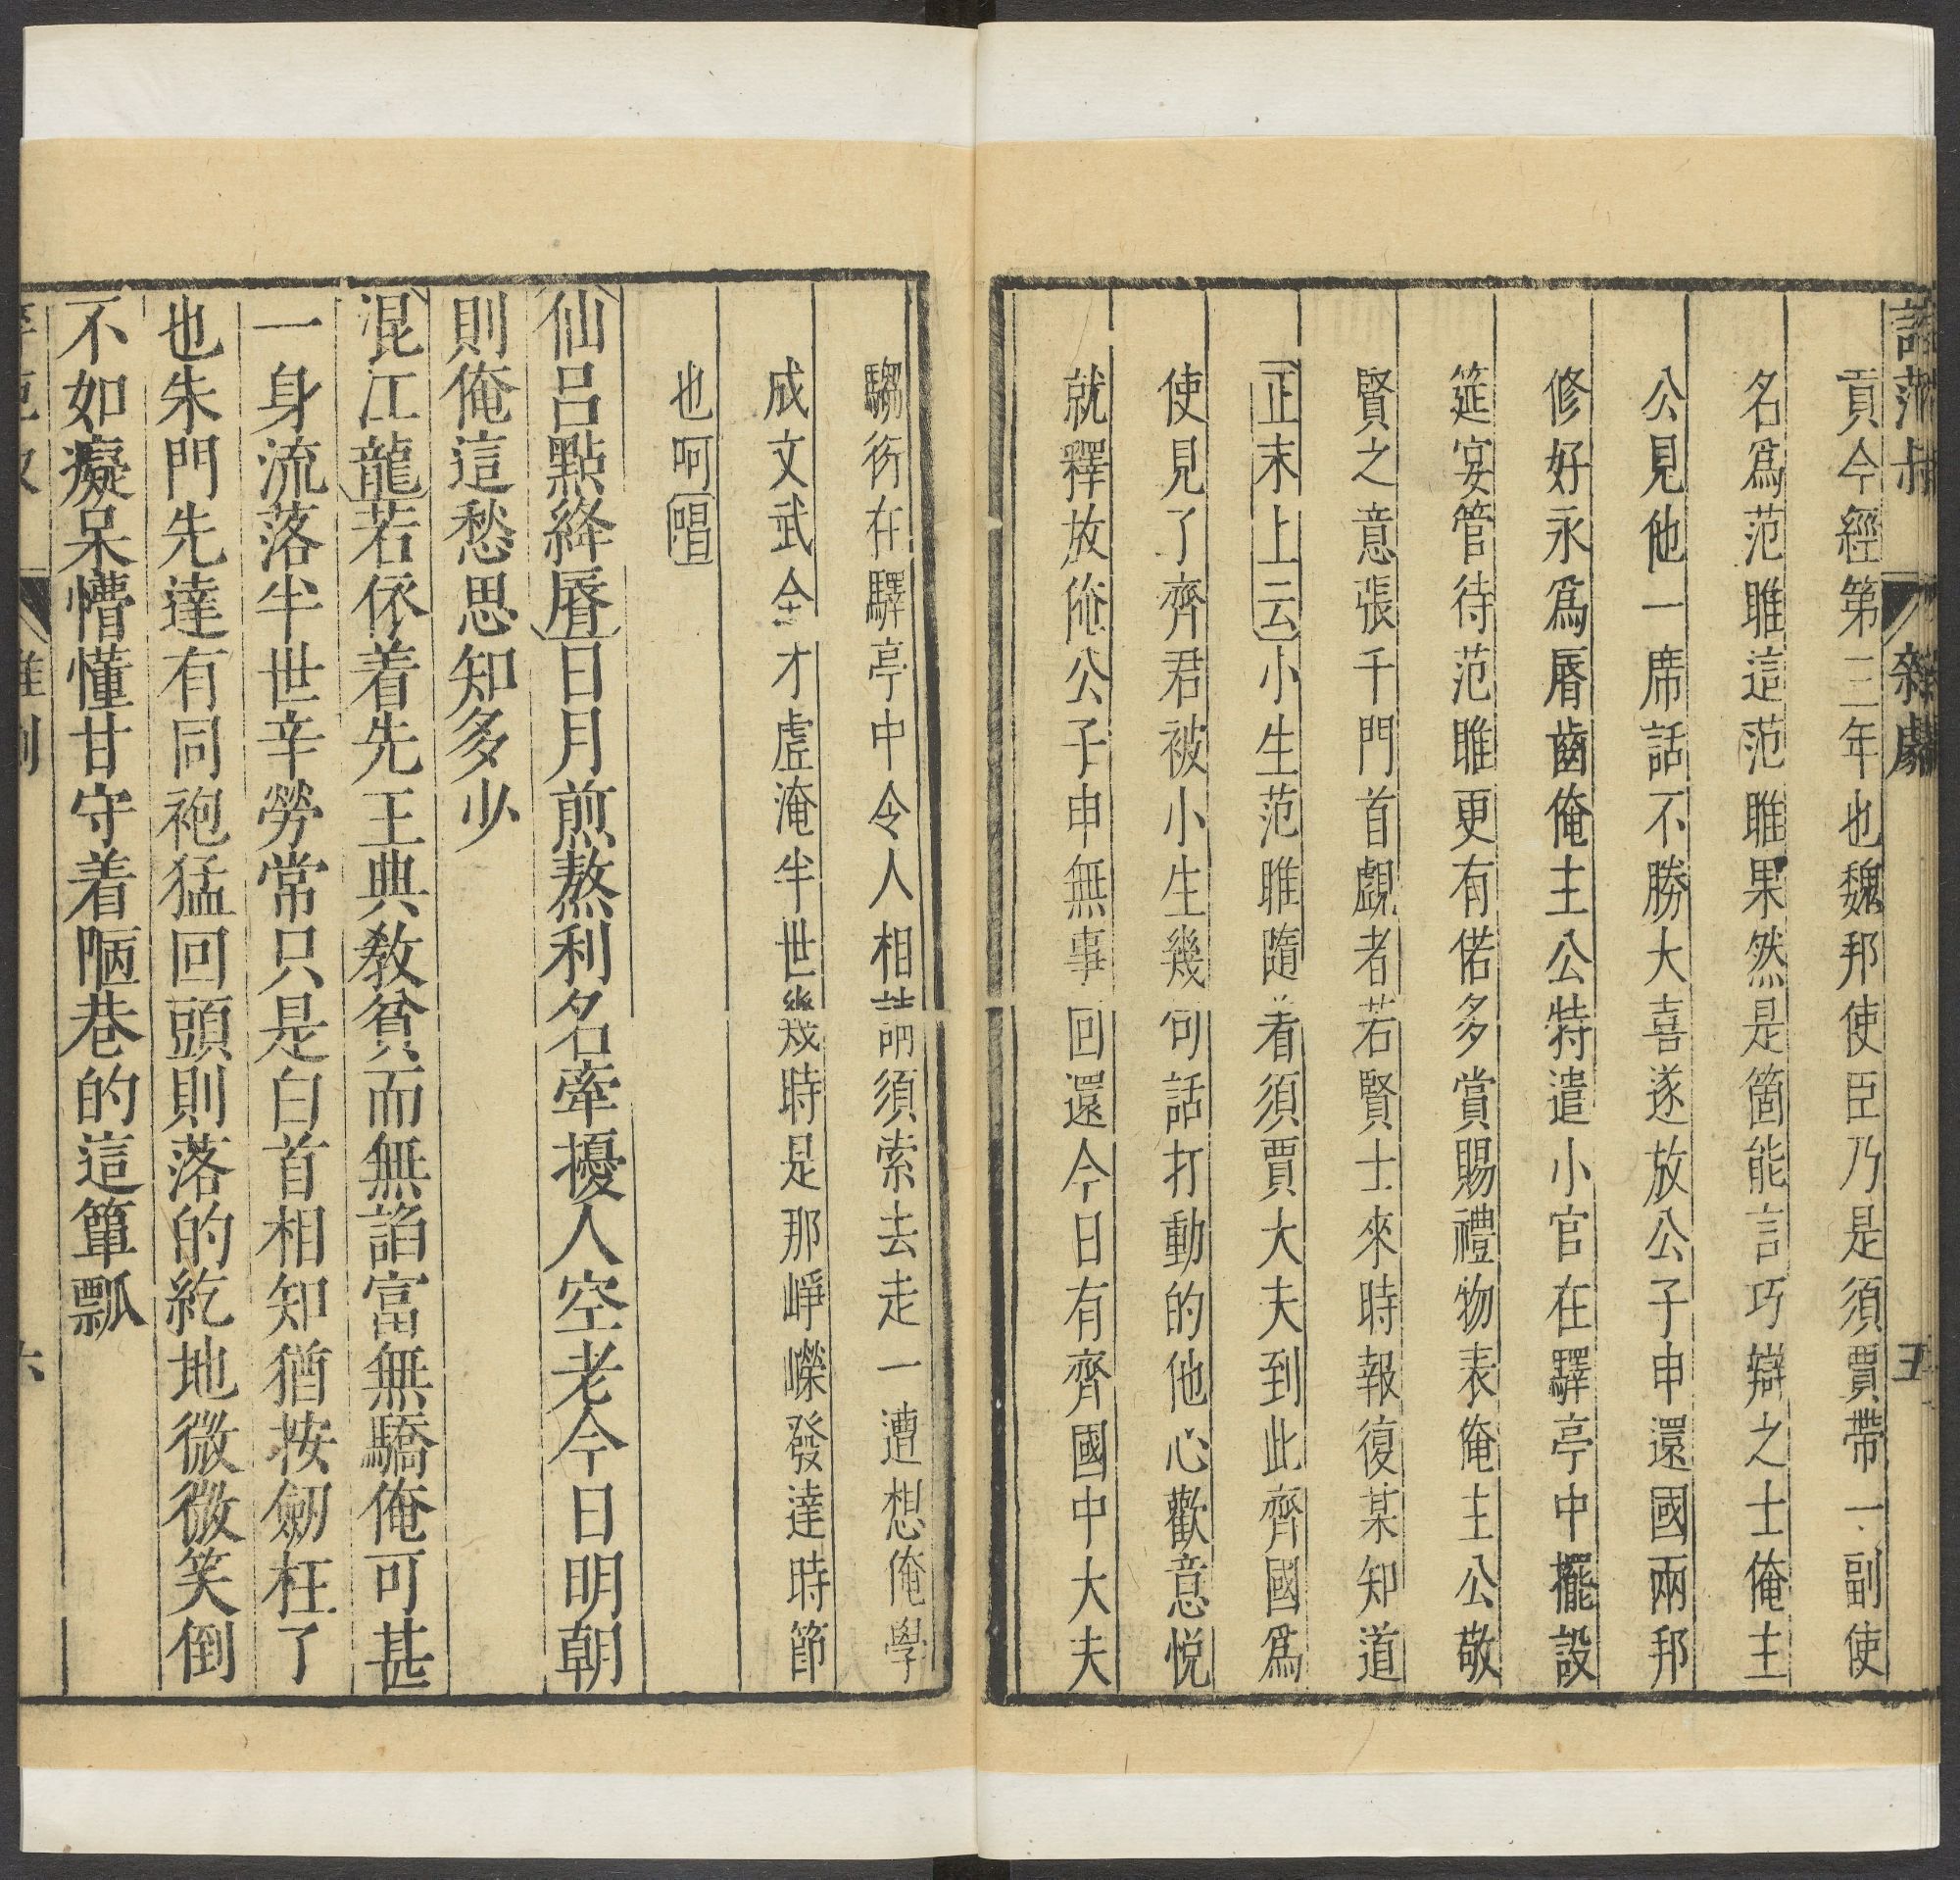 誶范叔 雜劇 五
貢今經第三年也魏邦使臣乃是須賈帶一副使
名爲范雎這范雎果然是箇能言巧辯之士俺主
公見他一席話不勝大喜遂放公子申還國兩邦
修好永爲脣齒俺主公特遣小官在驛亭中擺設
筵宴管待范雎更有偌多賞賜禮物表俺主公敬
賢之意張千門首覷者若賢士來時報復某知道
正末上云小生范雎隨着須賈大夫到此齊國爲
使見了齊君被小生幾句話打動的他心歡意悅
就釋放俺公子申無事回還今日有齊國中大夫
騶衍在驛亭中令人相請須索去走一遭想俺學
成文武全才虛淹半世幾時是那崢嶸發達時節
也呵唱
仙呂點絳脣日月煎熬利名牽擾人空老今日明朝
則俺這愁思知多少
混江龍若依着先王典教貧而無諂富無驕俺可甚
一身流落半世辛勞常只是白首相知猶按劒枉了
也朱門先達有同袍猛回頭則落的紇地微微笑倒
不如癡呆懵懂甘守着陋巷的這簞瓢
六